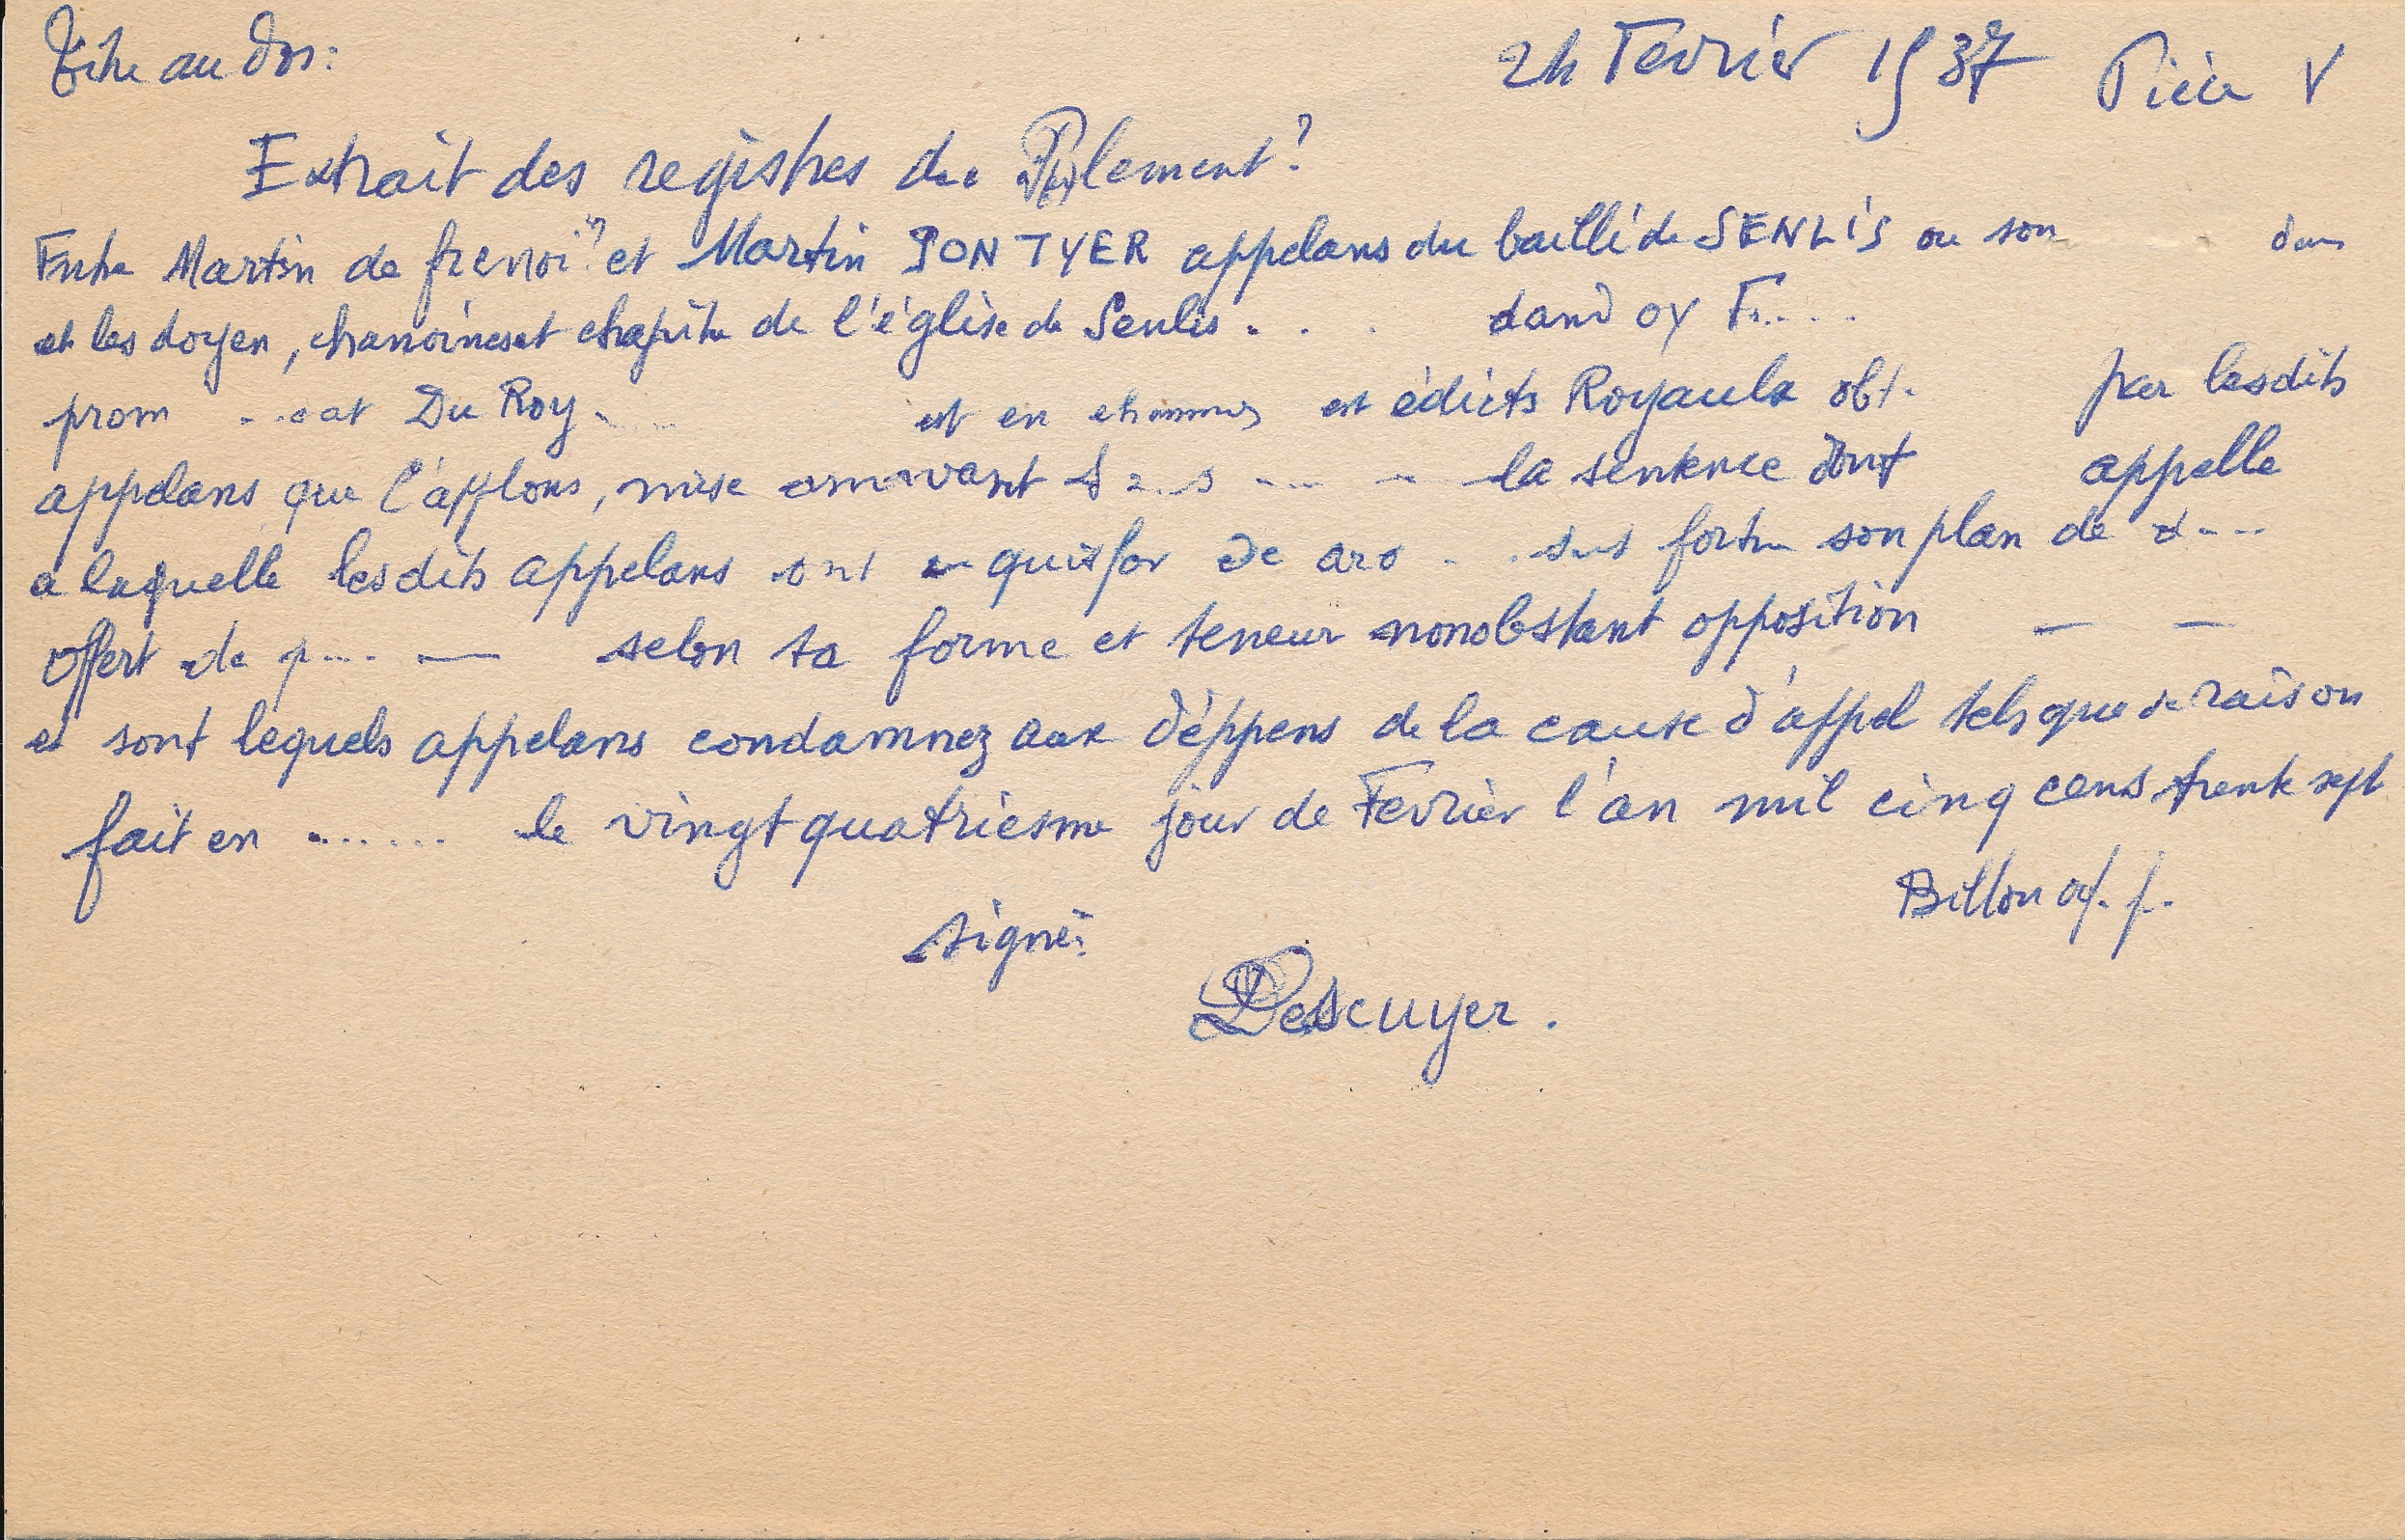 Titre au dos: 24 Février 1537 Pièce V
Extrait des registres du Parlement?
Entre Martin de frenoi? et Martin PONTYER appelans du bailli de SENLIS ou son dun
et les doyen, chanoines et chapitre de l'église de Senlis . . . dand oy F....
prom ...sat Du Roy. .. est en et édicts Royaulx obt. par lesdits
appelans que l'applons, mise la sentence dont appelle
a laquelle lesdits appelans ont de aro . . son plan de d---
offert de p... — selon sa forme et teneur nonobstant opposition — —
et sont lequels appelans condamnez aux déppens de la cause d'appel tels que de raison
fait en ....... le vingt quatriesme jour de Février l'an mil cinq cens trente sept
Billon
signé:
Lescuyer.